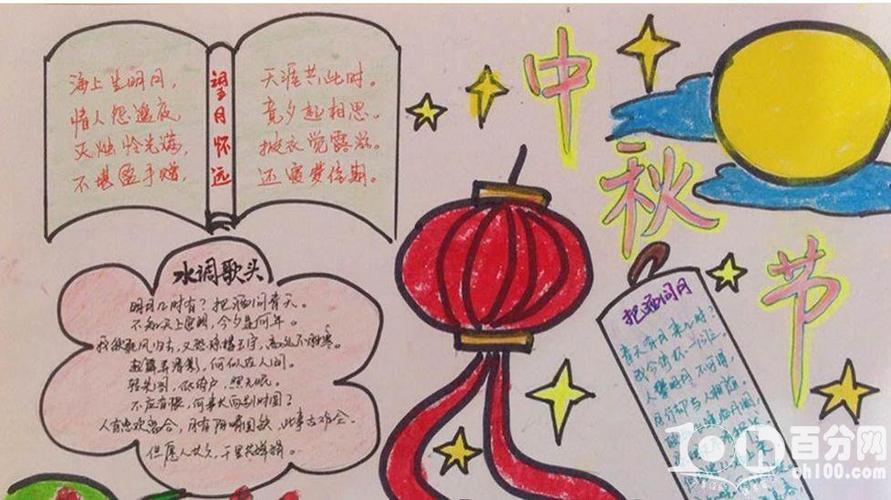 望月怀远
海上生明月，
情人怨遥夜
灭烛怜光满，
不堪盈手赠，
天涯共此时。
竟夕起相思。
披衣觉露滋。
还寝梦佳期。
中秋节
水调歌头
明月几时有？把酒问青天。
不知天上宫阙，今夕是何年。
我欲乘风归去，又恐琼楼玉宇，高处不胜寒。
起舞弄清影，何似在人间。
转朱阁，低绮户，照无眠。
不应有恨，何事长向别时圆？
人有悲欢离合，月有阴晴圆缺，此事古难全。
但愿人长久，千里共婵娟。
把酒问月
青天有月来几时？
我今停杯一问之。
人攀明月不可得，
月行却与人相随。
百分网
oh100.com